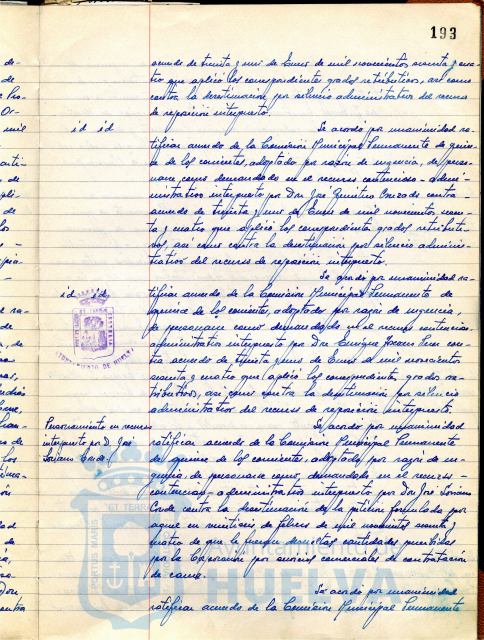 193
acuerdo de treinta y uno de Enero de mil novecientos sesenta y cua-
tro que aplicó los correspondientes grados retributivos, así como
contra la desestimación por silencio administrativo del recurso
de reposición interpuesto.
id id
Se acordó por unanimidad ra-
tificar acuerdo de la Comisión Municipal Permanente de quin-
ce de los corrientes, adoptado por razón de urgencia, de perso-
narse como demandado en el recurso contencioso-admi-
nistrativo interpuesto por Don José contra
acuerdo de treinta y uno de Enero de mil novecientos sesen-
ta y cuatro que aplicó los correspondientes grados retributi-
vos, así como contra la desestimación por silencio adminis-
trativo del recurso de reposición interpuesto.
id id
Se acordó por unanimidad ra-
tificar acuerdo de la Comisión Municipal Permanente de
quince de los corrientes, adoptado por razón de urgencia,
de personarse como demandado en el recurso contencioso
administrativo interpuesto por Don Enrique con-
tra acuerdo de treinta y uno de Enero de mil novecientos
sesenta y cuatro que aplicó los correspondientes grados re-
tributivos, así como contra la desestimación por silencio
administrativo del recurso de reposición interpuesto.
AYUNTAMIENTO DE HUELVA
Personamiento en recurso
interpuesto por D. José
Soriano Conde
Se acordó por unanimidad
ratificar acuerdo de la Comisión Municipal Permanente
de quince de los corrientes, adoptado por razón de ur-
gencia, de personarse como demandado en el recurso
contencioso-administrativo interpuesto por Don José Soriano
Conde, contra la desestimación de la petición formulada por
aquel en veintiséis de febrero de mil novecientos sesenta y
cuatro de que le fuesen devueltas cantidades percibidas
por la Corporación por
de carne.
Se acordó por unanimidad
ratificar acuerdo de la Comisión Municipal Permanente
PORTUS MARIS ET TERRAE
Ayuntamiento de
HUELVA